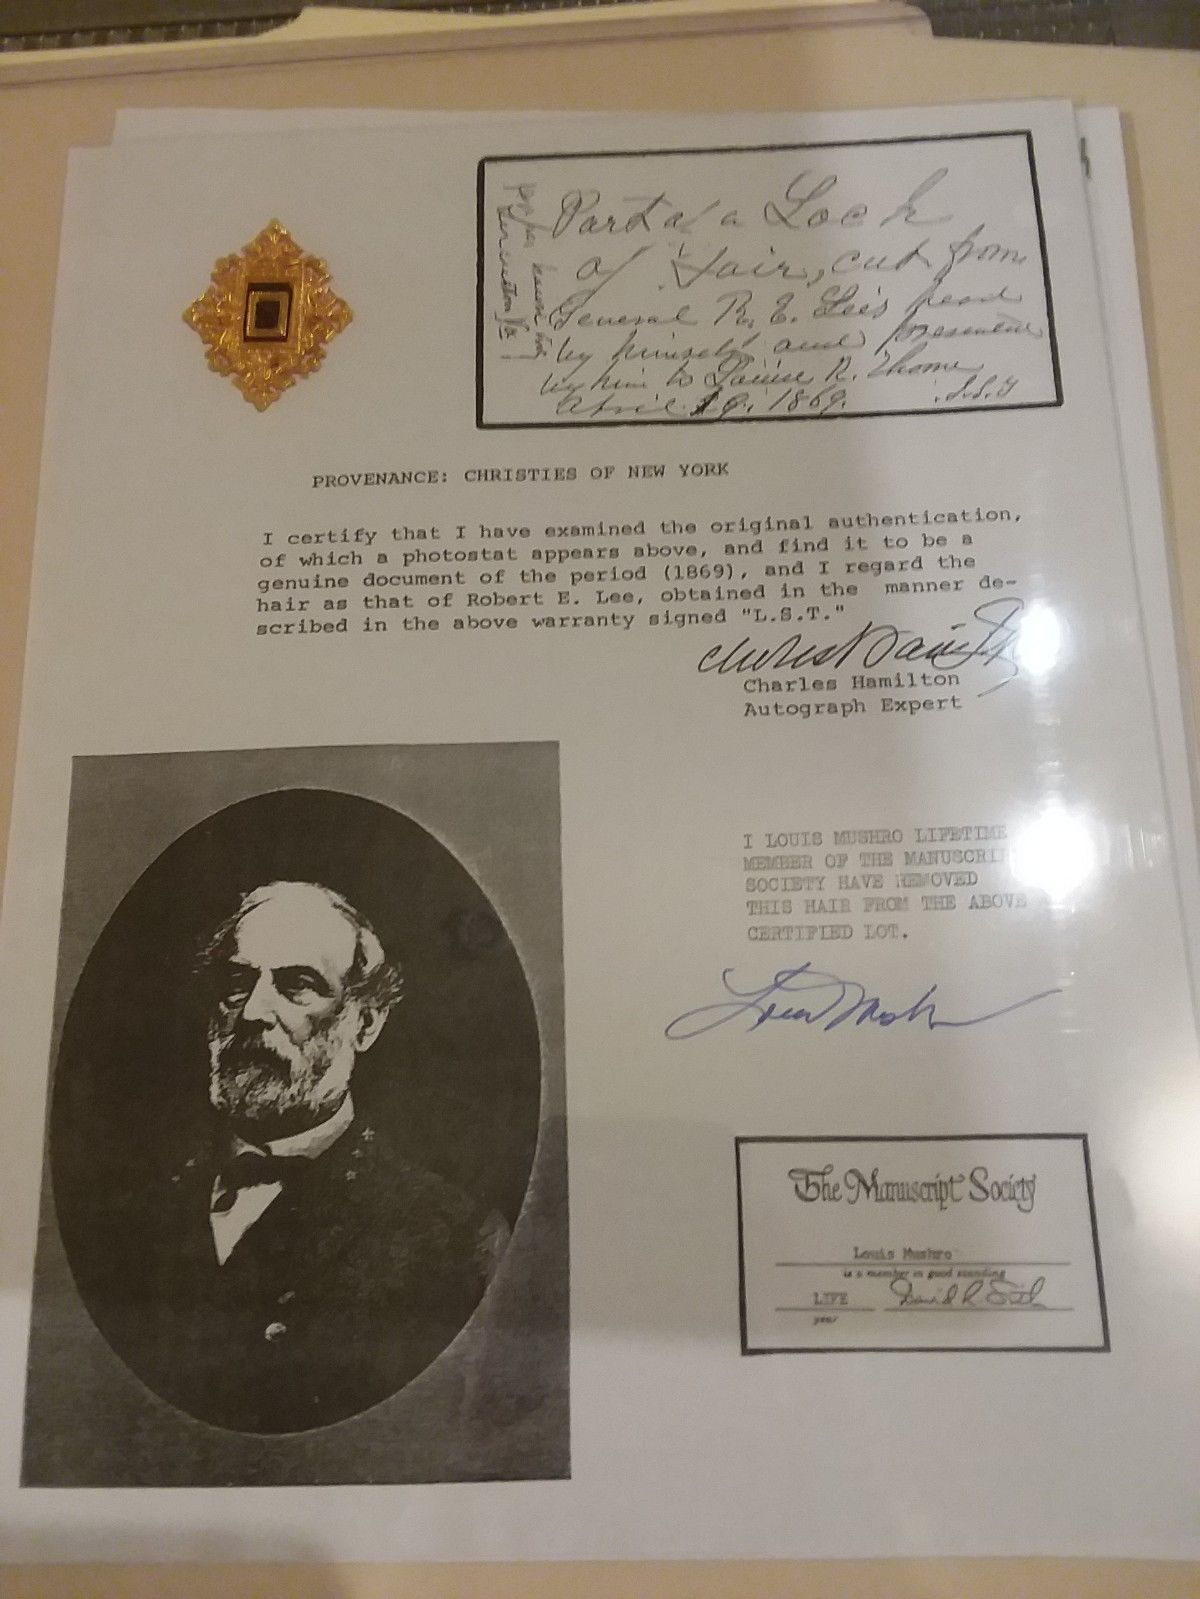 Part of a Lock
of Hair, cut from
General R. E. Lee's head
by himself and presented
by him to Louise R. Thome
April 19. 1869.
L.S.T
Lexington Va
PROVENANCE: CHRISTIES OF NEW YORK
I certify that I have examined the original authentication,
of which a photostat appears above, and find it to be a
genuine document of the period (1869), and I regard the
hair as that of Robert E. Lee, obtained in the manner de-
scribed in the above warranty signed "L.S.T."
Charles Hamilton
Charles Hamilton
Autograph Expert
I LOUIS MUSHRO LIFETIME
MEMBER OF THE MANUSCRI
SOCIETY HAVE REMOVED
THIS HAIR FROM THE ABOVE
CERTIFIED LOT.
Louis Mushro
The Manuscript Society
Louis Mushro
is a member in good standing
LIFE David R. Smith
year